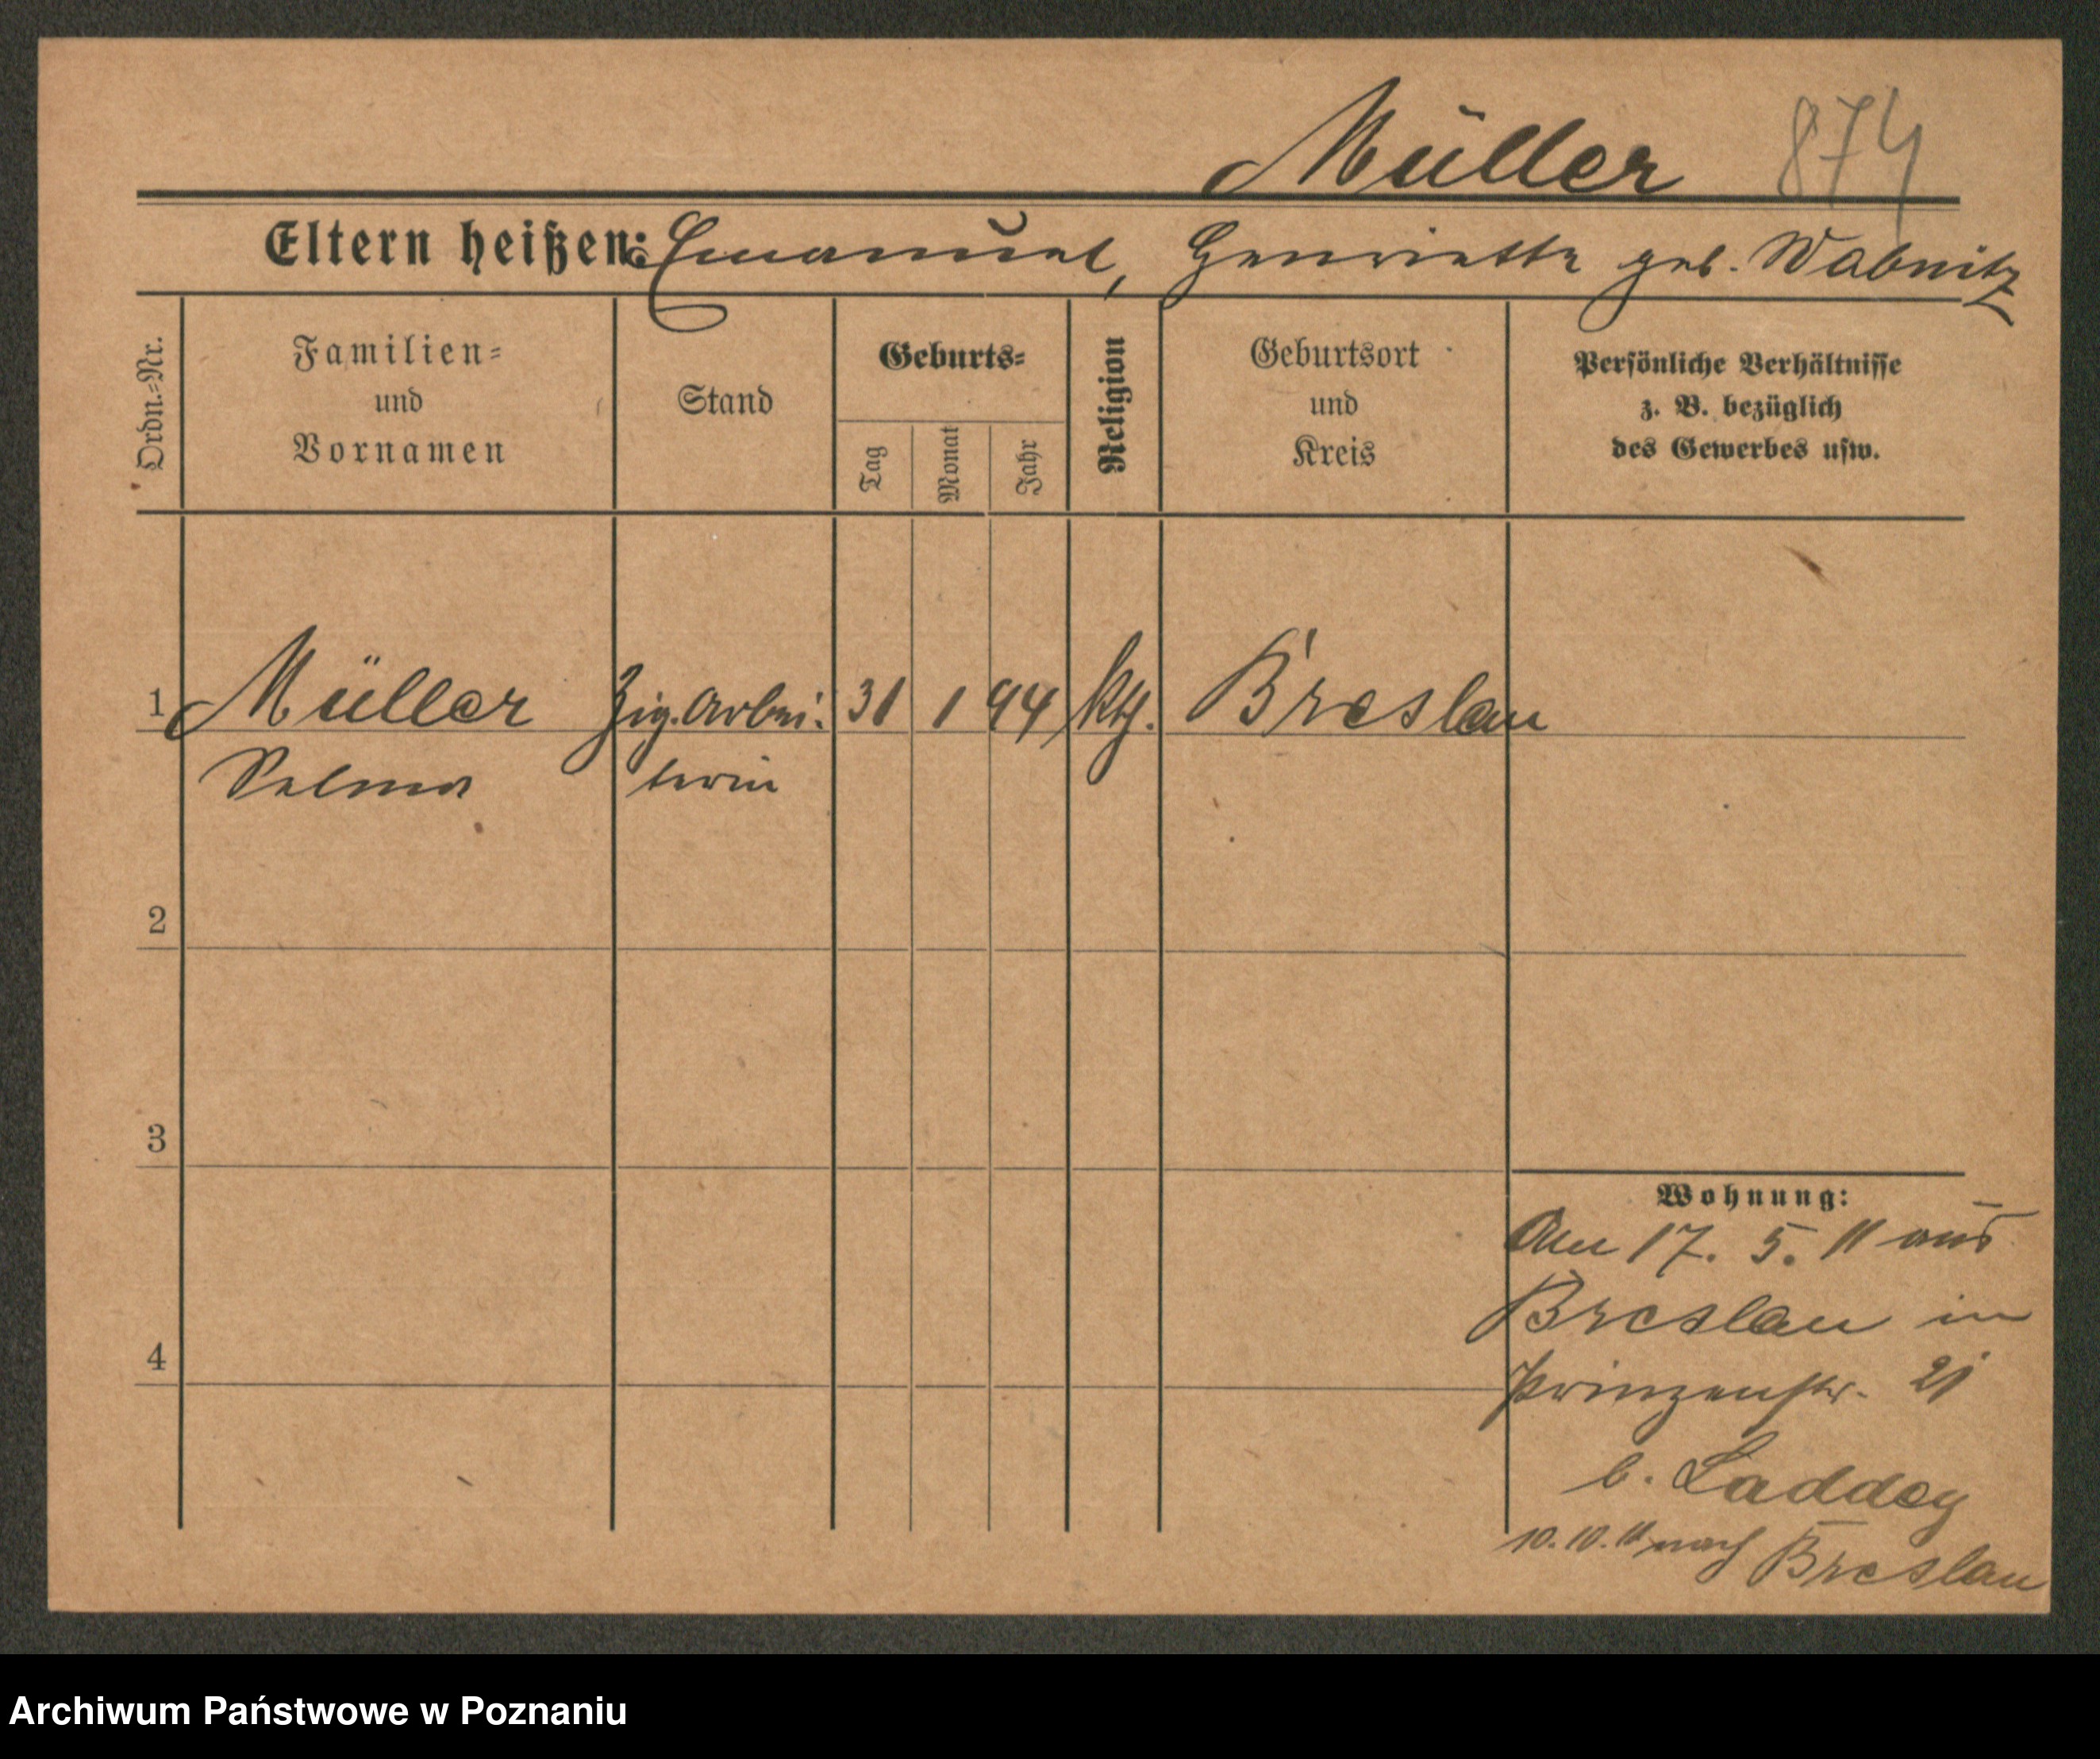 Müller 874
Eltern heißen: Emanuel, Henriette geb. Wabnitz
Ordn.-Nr.
Familien-
und
Vornamen
Stand
Geburts-
Tag
Monat
Jahr
Religion
Geburtsort
und
Kreis
Persönliche Verhältnisse
z. B. bezüglich
des Gewerbes usw.
1 Müller Zig. Arbei- 31 1 94 kth. Breslau
Selma terin
2
3
4
Wohnung:
Am 17. 5. 11 aus
Breslau in
Prinzenstr. 21
b. Laddey
10. 10. 11 nach Breslau
Archiwum Państwowe w Poznaniu